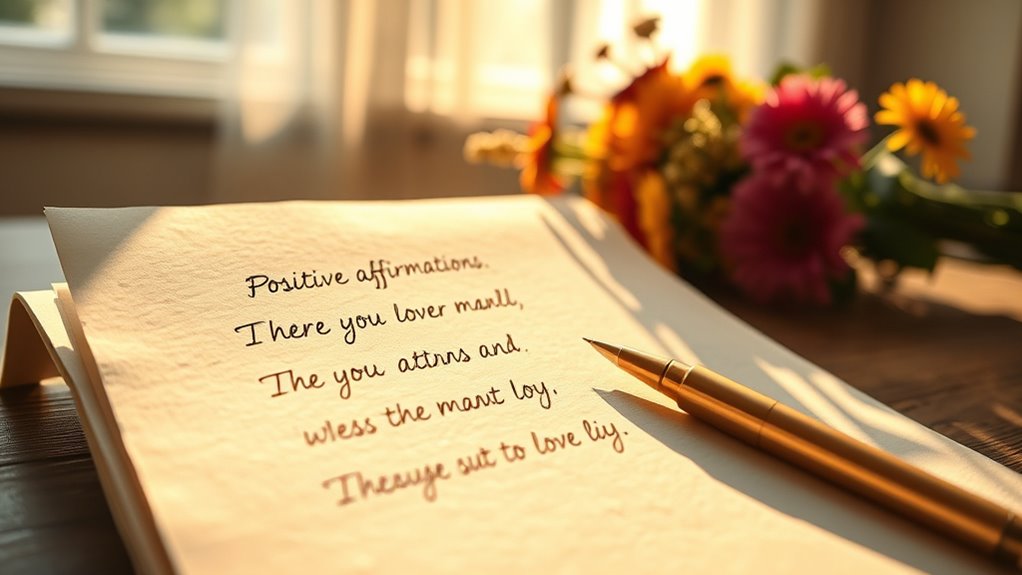 Positive affirmations.
There you lover manll,
The you attrns and.
wless the mant loy,
Thesuge sut to love liy.